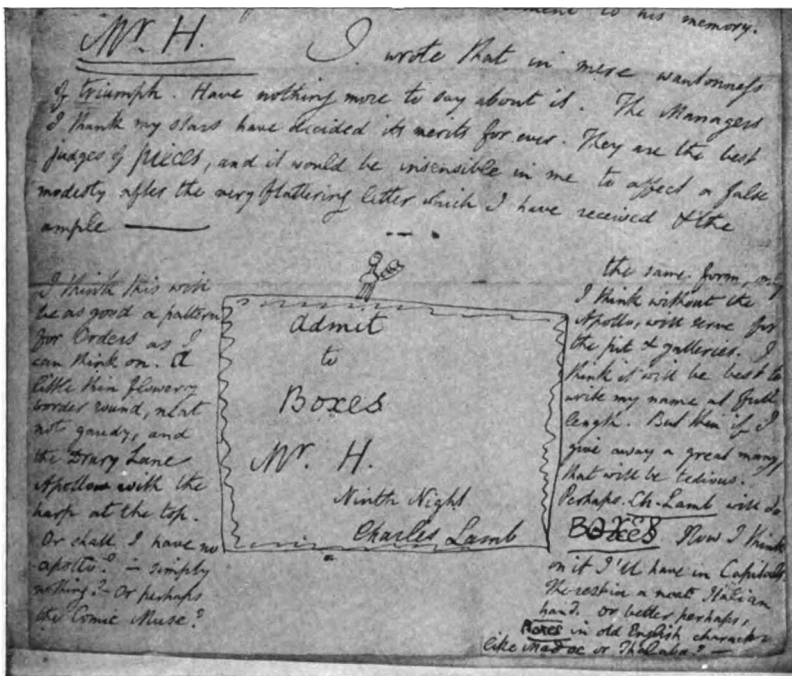 to his memory.
Mr. H. I wrote that in mere wantonness
of triumph. Have nothing more to say about it. The Managers
I thank my stars have decided its merits for ever. They are the best
judges of pieces, and it would be insensible in me to affect a false
modesty after the very flattering letter which I have received & the
ample —
I think this will
be as good a pattern
for Orders as I
can think on. A
little thin flowery
border round, neat
not gaudy, and
the Drury Lane
Apollo with the
harp at the top.
Or shall I have no
apollo? — simply
nothing? — Or perhaps
the Comic Muse?
Admit
to
Boxes
Mr. H.
Ninth Night
Charles Lamb
the same form, only
I think without the
Apollo, will serve for
the pit & galleries. I
think it will be best to
write my name at full
length. But then if I
give away a great many,
that will be tedious.
Perhaps Ch. Lamb will do
BOXES Now I think
on it I'll have in Capitals
The rest in a neat Italian
hand. Or better perhaps,
Boxes in old English character
like Madoc or Thalaba? —